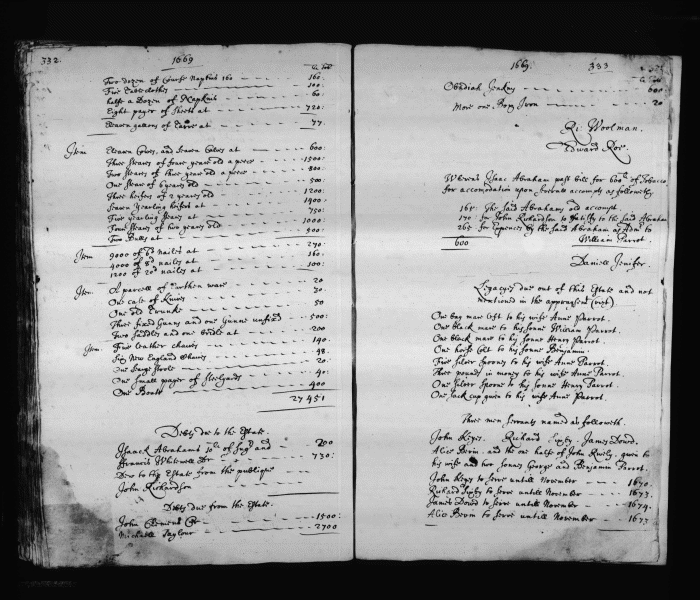 332. 1669
Two dozen of Course Napkins 160 160
Five Tableclothes 100
halfe a Dozen of Napkins 60
Eight payer of Sheets at 720
Eleaven gallons of Tarre at 77
Item Eleaven Cowes, and Seaven Calves at 600
Three Steares of foure yeares old a peece 1500
Two Steares of three yeares old a peece 800
One Steare of 6 yeares old 500
Three heifers of 2 yeares old 1200
Seaven Yearling heifers at 1400
Five yearling Steares at 750
Foure Steares of two yeares old 1000
Two Bulls at 500
Item 9000 of nailes at 270
4000 of 8d nailes at 160
1200 of 20d nailes at 100
Item A parcell of Earthen ware 20
One case of Knives 30
One old Trunke 50
Three fixed Gunns and one Gunne unfixed 500
Two Saddles and one bridle at 200
Item Five leather chaires 140
Six New England Chaires 48
One Stoole 20
One Small payer of Stilyards 40
One Boate 400
27451
Debts due to the Estate
Isaack Abrahams and 200
Whitewell Dr 730
Due to the Estate from the publique
John Richardson
Debts due from the Estate.
John Clements Cr 1500
Michaell Taylour 2700
1669. 333
Obadiah Jenkins 600
More one Iron 20
Ri: Woolman.
Edward Roe.
Whereas Isaac Abraham past bill for 600l of Tobacco
for accomodation upon accompts as followeth
165 The Said Abrahams old accompt.
170 for John Richardson to to the Said Abraham
265 for Expences by the Said Abraham as Adm to
600 William Parrot.
Daniell Jenifer.
Legacyes due out of this Estate and not
mentioned in the appraisment (vizt)
One bay mare left to his wife Anne Parrot.
One black mare to his Sonne William Parrot.
One black mare to his Sonne Henry Parrot.
One horse Colt to his Sonne Benjamin.
Five Silver Spoones to his wife Anne Parrot.
Three pound in money to his wife Anne Parrot.
One Silver Spoone to his Sonne Henry Parrot.
One Jack cup given to his wife Anne Parrot.
Three men Servants named as followeth.
John Keyes. Richard James Dowd.
Alice Berin. and the one halfe of John given to
his wife and two Sonnes George and Benjamin Parrot.
John Keyes to Serve untill November 1670.
Richard to Serve untill November 1673.
James Dowd to Serve untill November 1674.
Alice Berin to Serve untill November 1673